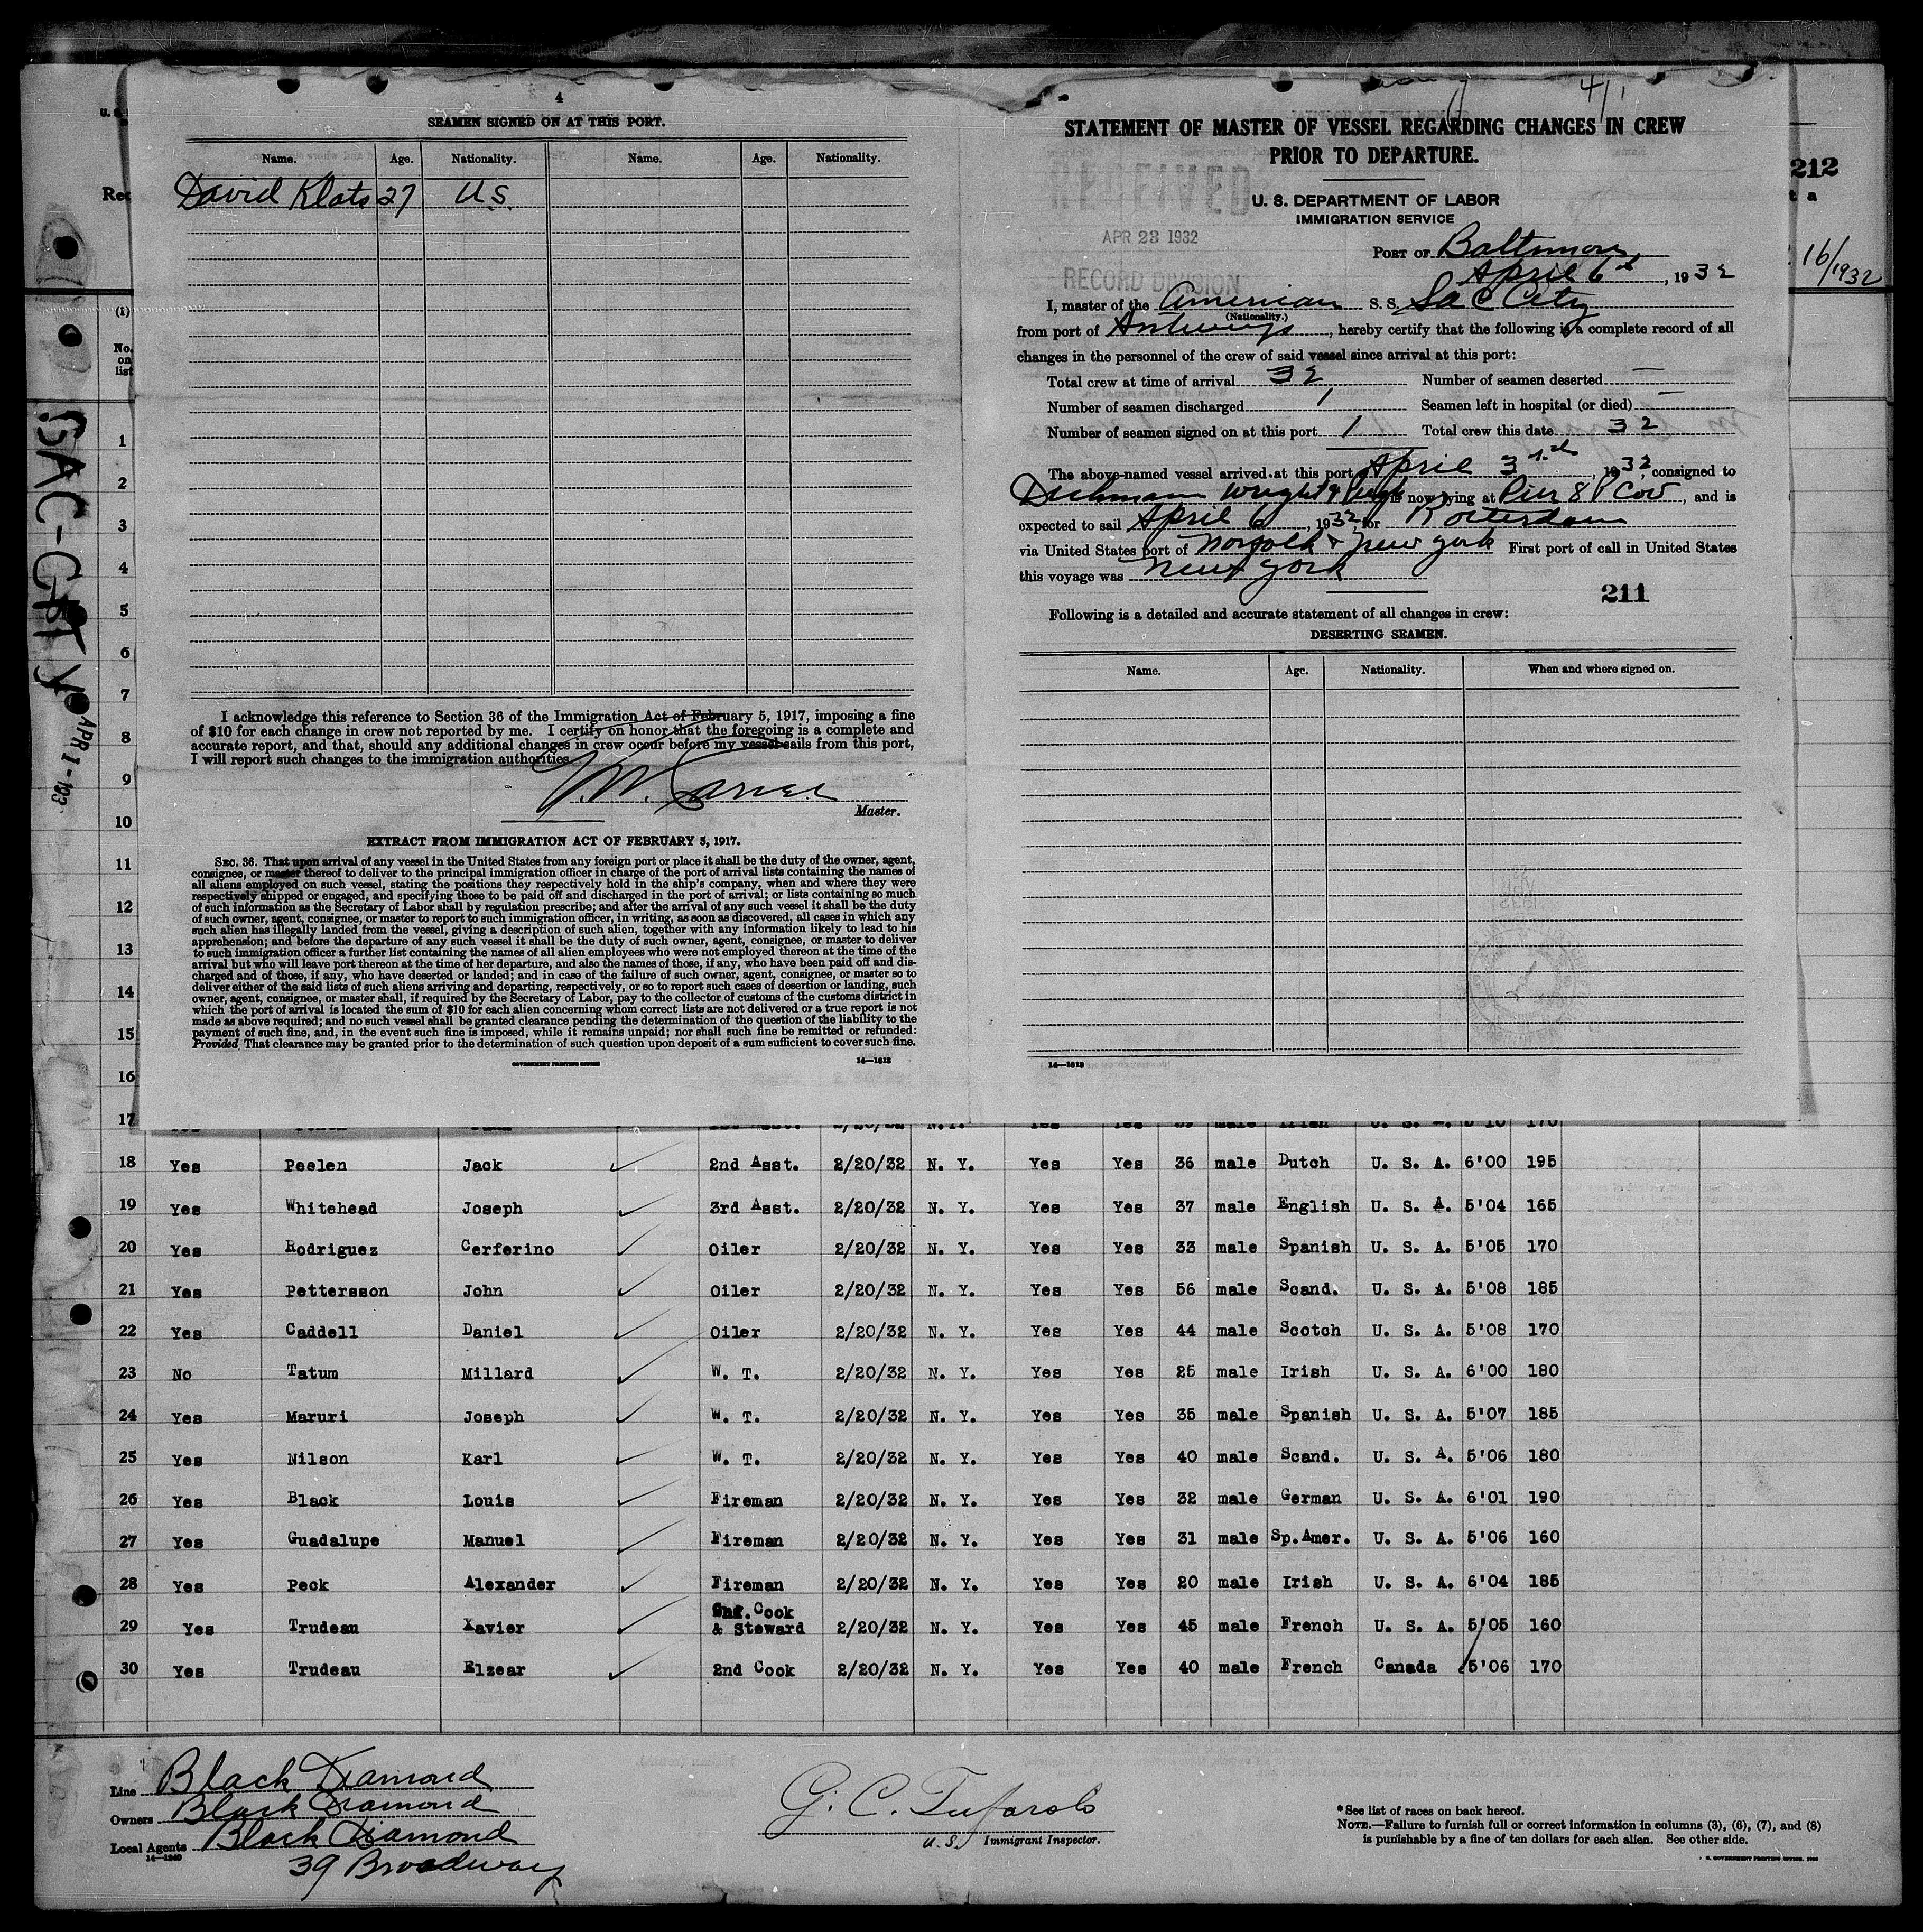 4
SEAMEN SIGNED ON AT THIS PORT.
Name. Age. Nationality. Name. Age. Nationality.
David Klats 27 U.S.
I acknowledge this reference to Section 36 of the Immigration Act of February 5, 1917, imposing a fine
of $10 for each change in crew not reported by me. I certify on honor that the foregoing is a complete and
accurate report, and that, should any additional changes in crew occur before my vessel sails from this port,
I will report such changes to the immigration authorities.
Master.
EXTRACT FROM IMMIGRATION ACT OF FEBRUARY 5, 1917.
SEC. 36. That upon arrival of any vessel in the United States from any foreign port or place it shall be the duty of the owner, agent,
consignee, or master thereof to deliver to the principal immigration officer in charge of the port of arrival lists containing the names of
all aliens employed on such vessel, stating the positions they respectively hold in the ship's company, when and where they were
respectively shipped or engaged, and specifying those to be paid off and discharged in the port of arrival; or lists containing so much
of such information as the Secretary of Labor shall by regulation prescribe; and after the arrival of any such vessel it shall be the duty
of such owner, agent, consignee, or master to report to such immigration officer, in writing, as soon as discovered, all cases in which any
such alien has illegally landed from the vessel, giving a description of such alien, together with any information likely to lead to his
apprehension; and before the departure of any such vessel it shall be the duty of such owner, agent, consignee, or master to deliver
to such immigration officer a further list containing the names of all alien employees who were not employed thereon at the time of the
arrival but who will leave port thereon at the time of her departure, and also the names of those, if any, who have been paid off and dis-
charged and of those, if any, who have deserted or landed; and in case of the failure of such owner, agent, consignee, or master so to
deliver either of the said lists of such aliens arriving and departing, respectively, or so to report such cases of desertion or landing, such
owner, agent, consignee, or master shall, if required by the Secretary of Labor, pay to the collector of customs of the customs district in
which the port of arrival is located the sum of $10 for each alien concerning whom correct lists are not delivered or a true report is not
made as above required; and no such vessel shall be granted clearance pending the determination of the question of the liability to the
payment of such fine, and, in the event such fine is imposed, while it remains unpaid; nor shall such fine be remitted or refunded:
Provided That clearance may be granted prior to the determination of such question upon deposit of a sum sufficient to cover such fine.
GOVERNMENT PRINTING OFFICE 14—1613
4/1
STATEMENT OF MASTER OF VESSEL REGARDING CHANGES IN CREW
PRIOR TO DEPARTURE.
RECEIVED
APR 23 1932
RECORD DIVISION
U. S. DEPARTMENT OF LABOR
IMMIGRATION SERVICE
PORT OF Baltimore
April 6th, 1932
I, master of the American S. S. Sac City
(Nationality.)
from port of Antwerp, hereby certify that the following is a complete record of all
changes in the personnel of the crew of said vessel since arrival at this port:
Total crew at time of arrival 32 Number of seamen deserted —
Number of seamen discharged 1 Seamen left in hospital (or died) —
Number of seamen signed on at this port 1 Total crew this date 32
The above-named vessel arrived at this port April 3rd, 1932, consigned to
Wright & Pugh is now lying at Pier 8 P Cov, and is
expected to sail April 6, 1932, for Rotterdam
via United States port of Norfolk & New York First port of call in United States
this voyage was New York
211
Following is a detailed and accurate statement of all changes in crew:
DESERTING SEAMEN.
Name. Age. Nationality. When and where signed on.
14—1613
212
t a
16/1932
U. S.
Rec
(1)
No.
on
list
SAC-CITY
APR 1 - 193
1
2
3
4
5
6
7
8
9
10
11
12
13
14
15
16
17
18 Yes Peelen Jack 2nd Asst. 2/20/32 N. Y. Yes Yes 36 male Dutch U. S. A. 6'00 195
19 Yes Whitehead Joseph 3rd Asst. 2/20/32 N. Y. Yes Yes 37 male English U. S. A. 5'04 165
20 Yes Rodriguez Cerferino Oiler 2/20/32 N. Y. Yes Yes 33 male Spanish U. S. A. 5'05 170
21 Yes Pettersson John Oiler 2/20/32 N. Y. Yes Yes 56 male Scand. U. S. A. 5'08 185
22 Yes Caddell Daniel Oiler 2/20/32 N. Y. Yes Yes 44 male Scotch U. S. A. 5'08 170
23 No Tatum Millard W. T. 2/20/32 N. Y. Yes Yes 25 male Irish U. S. A. 6'00 180
24 Yes Maruri Joseph W. T. 2/20/32 N. Y. Yes Yes 35 male Spanish U. S. A. 5'07 185
25 Yes Nilson Karl W. T. 2/20/32 N. Y. Yes Yes 40 male Scand. U. S. A. 5'06 180
26 Yes Black Louis Fireman 2/20/32 N. Y. Yes Yes 32 male German U. S. A. 6'01 190
27 Yes Guadalupe Manuel Fireman 2/20/32 N. Y. Yes Yes 31 male Sp.Amer. U. S. A. 5'06 160
28 Yes Peck Alexander Fireman 2/20/32 N. Y. Yes Yes 20 male Irish U. S. A. 6'04 185
29 Yes Trudeau Xavier Cook & Steward 2/20/32 N. Y. Yes Yes 45 male French U. S. A. 5'05 160
30 Yes Trudeau Elzear 2nd Cook 2/20/32 N. Y. Yes Yes 40 male French Canada 5'06 170
Line Black Diamond
Owners Black Diamond
Local Agents Black Diamond
14—1240
39 Broadway
G. C. Tufarolo
U. S. Immigrant Inspector.
*See list of races on back hereof.
NOTE.—Failure to furnish full or correct information in columns (3), (6), (7), and (8)
is punishable by a fine of ten dollars for each alien. See other side.